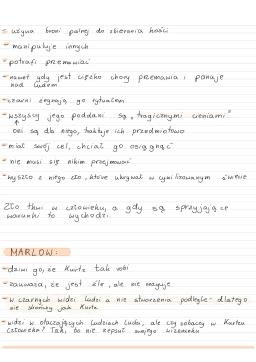 - używa broni palnej do zbierania kości
- manipuluje innych
- potrafi przemawiać
- nawet gdy jest ciężko chory przemawia i panuje
nad ludem
- czarni żegnają go rytuałem
- wszyscy jego poddani są „tragicznymi cieniami"
oni są dla niego, traktuje ich przedmiotowo
- miał swój cel, chciał go osiągnąć
- nie musi się nikim przejmować
- wyszło z niego zło, które ukrywał w cywilizowanym świecie
Zło tkwi w człowieku, a gdy są sprzyjające
warunki to wychodzi.
MARLOW:
- dziwi go, że Kurtz tak robi
- zauważa, że jest źle, ale nie reaguje
- w czarnych widzi ludzi a nie stworzenia podległe - dlatego
nie skończy jak Kurtz
- widzi w otaczających ludziach ludzi, ale czy zobaczy w Kurtzu
człowieka? Tak, bo nie zepsuł swojego wizerunku